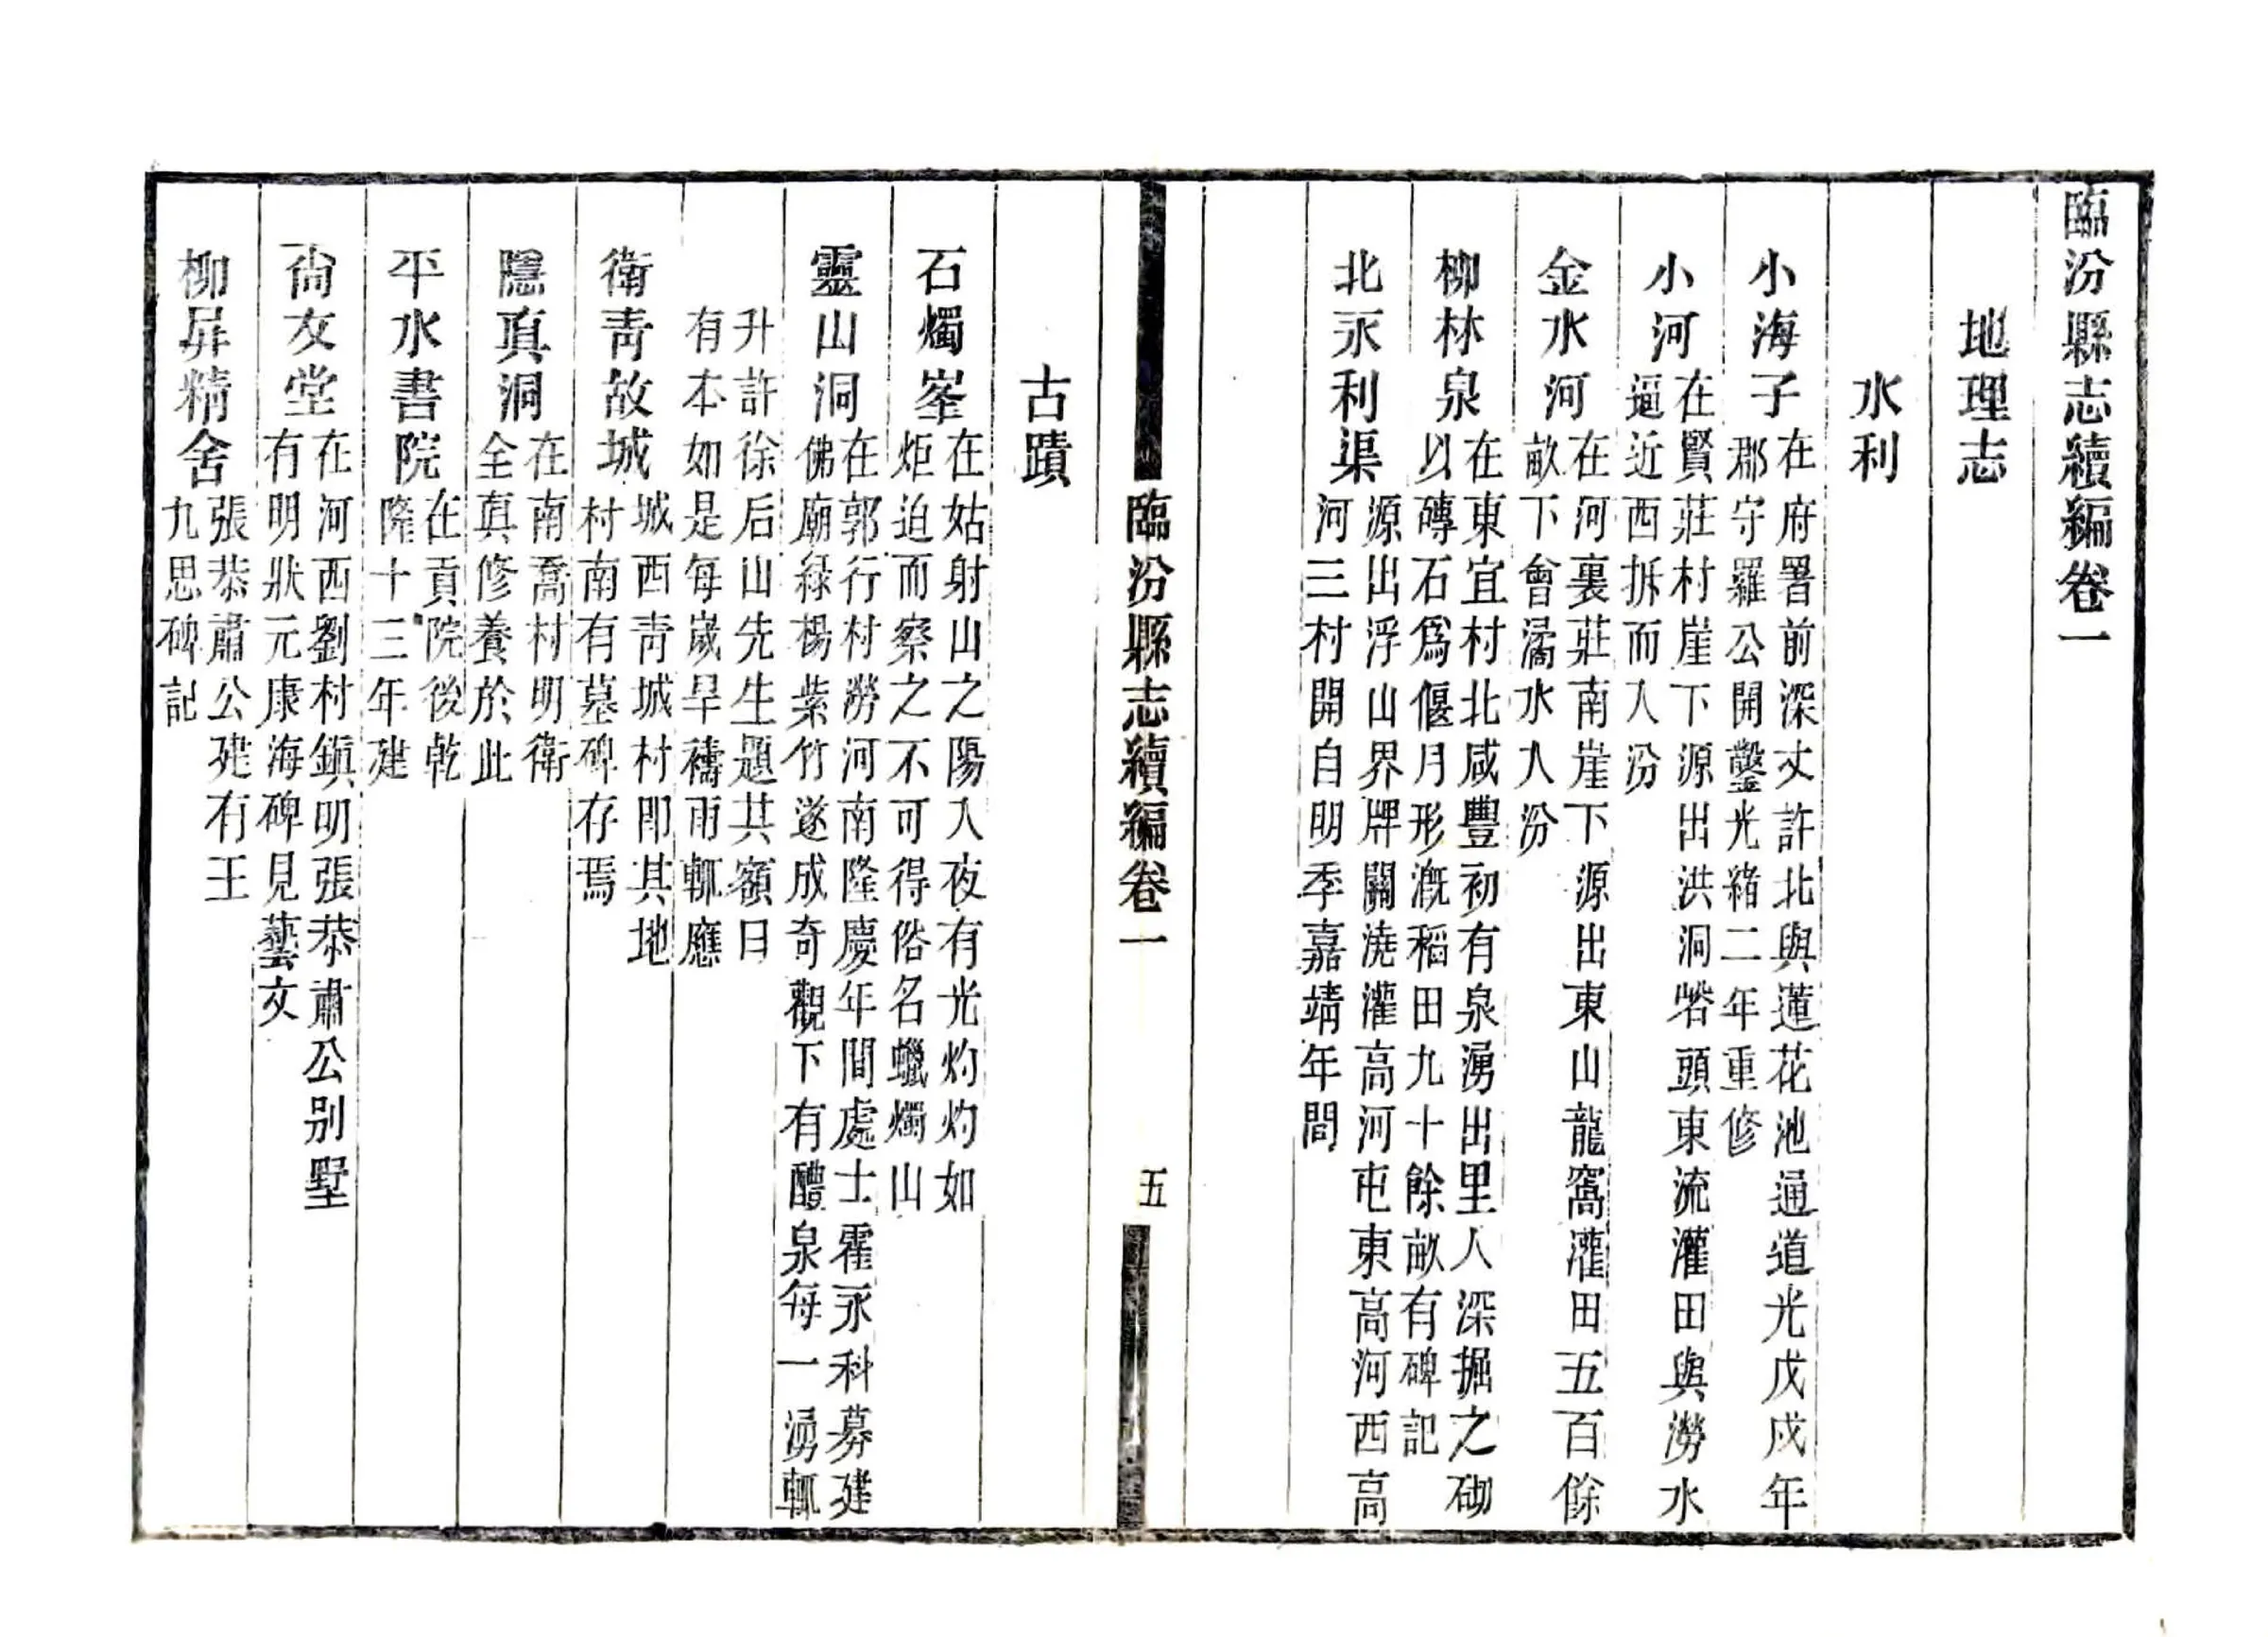 臨汾縣志續編卷一
地理志
水利
小海子
在府署前深丈許北與蓮花池通道光戊戌年
郡守羅公開鑿光緒二年重修
小河
在賢莊村崖下源出洪洞砦頭東流灌田與澇水
逼近西拆而入汾
金水河
在河裏莊南崖下源出東山龍窩灌田五百餘
畝下會潏水入汾
柳林泉
在東宜村北咸豐初有泉湧出里人深掘之砌
以磚石爲偃月形漑稻田九十餘畝有碑記
北永利渠
源出浮山界牌關澆灌高河屯東高河西高
河三村開自明季嘉靖年間
臨汾縣志續編卷一
五
古蹟
石燭峯
在姑射山之陽入夜有光灼灼如
炬迫而察之不可得俗名蠟燭山
靈山洞
在郭行村澇河南隆慶年間處士霍永科募建
佛廟綠楊紫竹遂成奇觀下有醴泉每一湧輒
升許徐后山先生題其額曰
有本如是每歲旱禱雨輒應
衛青故城
城西青城村即其地
村南有墓碑存焉
隱真洞
在南喬村明衛
全真修養於此
平水書院
在貢院後乾
隆十三年建
尚友堂
在河西劉村鎮明張恭肅公别墅
有明狀元康海碑見藝文
柳屏精舍
張恭肅公建有王
九思碑記